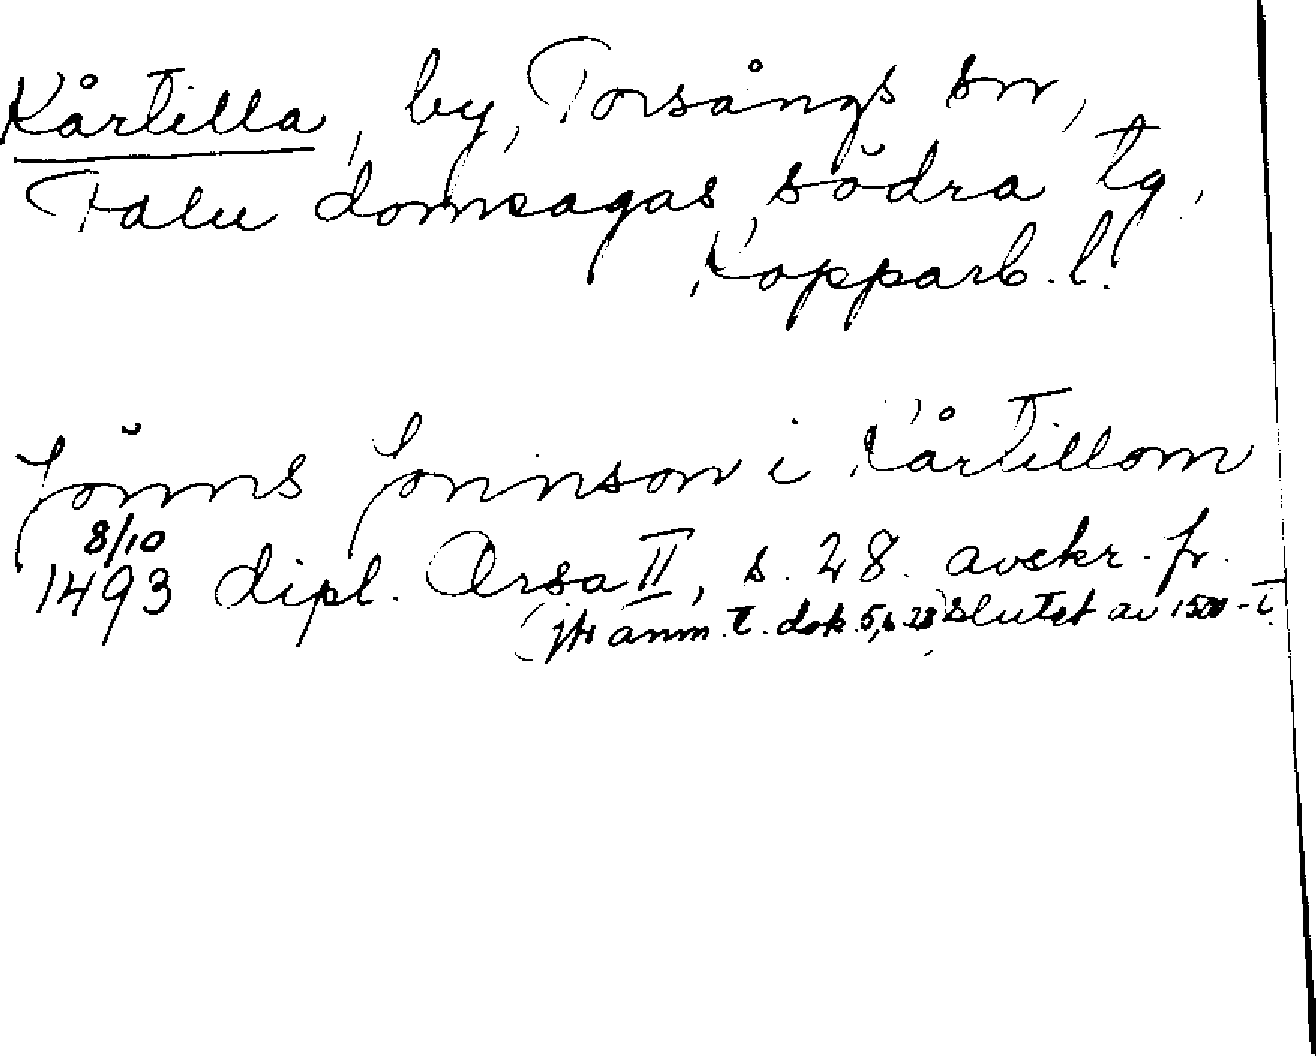 Kårtilla, by, Torsångs sn,
Falu domsagas södra tg,
Kopparb. l.
Jönns Jonnson i Kårtillom
8/10
1493 dipl. Orsa II, s. 28. avskr. fr.
(jfr anm. t. dok. 5, s. 28) slutet av 1500-t.